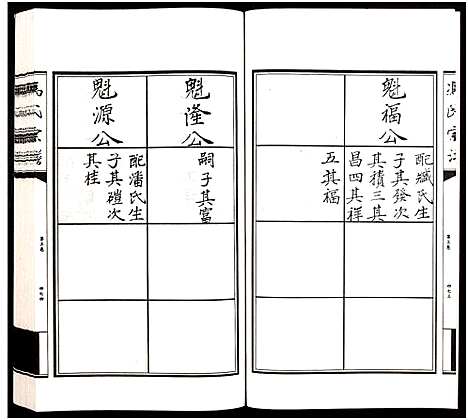 魁福公
配臧氏生
子其發次
其積三其
昌四其祥
五其福
魁隆公
嗣子其富
魁源公
配潘氏生
子其磑次
其桂
馮氏宗譜